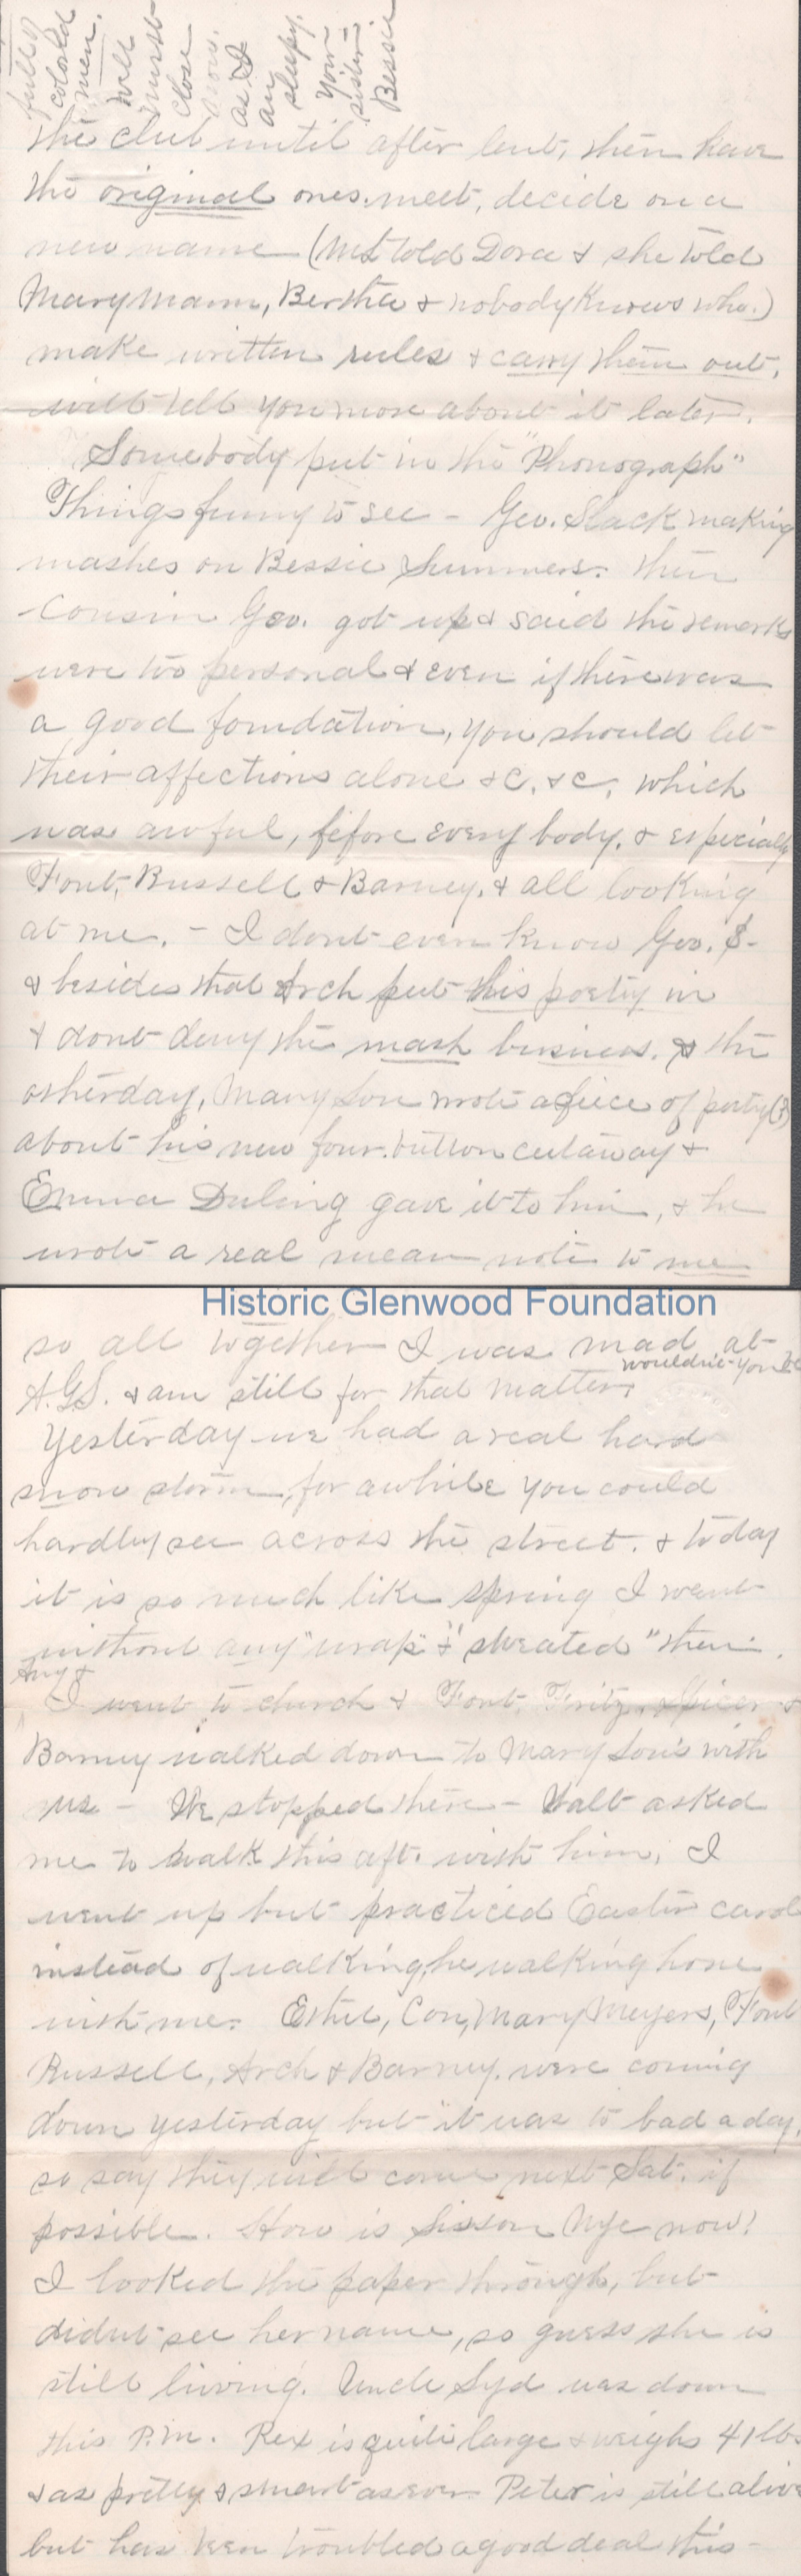 full of
colored
men.
Will
must
close
now.
as I
am
sleepy.
Your
sister
Bessie
the club until after lent, then have
the original ones meet, decide on a
new name (ML told Dora & she told
Mary Mann, Bertha & nobody knows who.)
make written rules & carry them out,
will tell you more about it later.
Somebody put in the "Phonograph"
Things funny to see - Geo. Slack making
mashes on Bessie Summers. Then
Cousin Geo. got up & said the remarks
were too personal & even if there was
a good foundation, you should let
their affections alone &c, &c, which
was awful, before every body, & especially
Font, Russell & Barney, & all looking
at me. - I dont even know Geo. S-
& besides that Arch put his poetry in
& dont deny the mash business. & the
otherday, Mary Lou wrote a piece of poetry (?)
about his new four-button cutaway &
Emma Duling gave it to him, & he
wrote a real mean note to me
Historic Glenwood Foundation
so all together I was mad at
wouldn't you be
A.G.S. & am still for that matter,
Yesterday we had a real hard
snow storm, for awhile you could
hardly see across the street. & today
it is so much like spring I went
without any "wrap" & "sweated" then.
Amy &
I went to church & Font, Fritz, &
Barney walked down to Mary Lou's with
us - We stopped there - Walt asked
me to walk this aft. with him, I
went up but practiced Easter carol
instead of walking, he walking home
with me. Ethel, Con, Mary Meyers, Font
Russell, Arch & Barney were coming
down yesterday but it was to bad a day,
so say they will come next Sat. if
possible. How is Sisson Nye now?
I looked the paper through, but
didnt see her name, so guess she is
still living. Uncle Syd was down
this P.M. Rex is quite large & weighs 41 lbs
& as pretty & smart as ever. Peter is still alive
but has been troubled a good deal this -